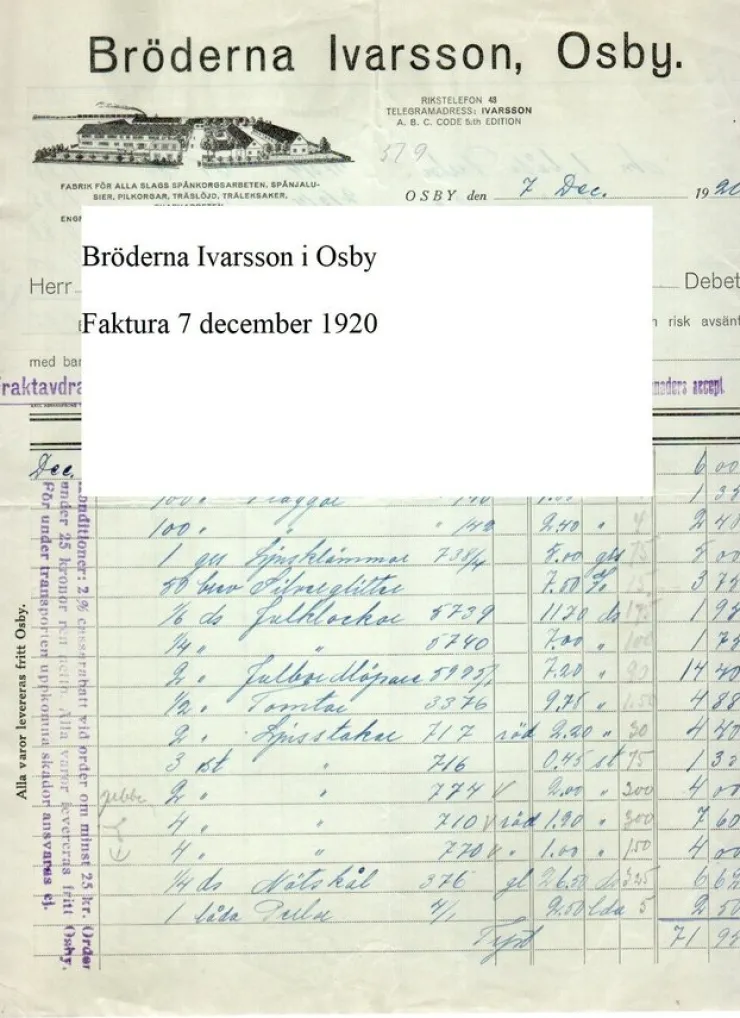 Bröderna Ivarsson, Osby.
RIKSTELEFON 48
TELEGRAMADRESS: IVARSSON
A. B. C. CODE 5:th EDITION
579
FABRIK FÖR ALLA SLAGS SPÅNKORGSARBETEN, SPÅNJALU-
SIER, PILKORGAR, TRÄSLÖJD, TRÄLEKSAKER,
OSBY den 7 Dec. 1920
Bröderna Ivarsson i Osby
Faktura 7 december 1920
Herr
Debet
risk avsänt
med
raktavdra
accept.
Dec. 6 00
100 " 140 1 3
100 " " 142 2.40 " 2 4
1 grs Ljusklämmor 738/4 5.00 grs 75 5 00
50 brev Silverglitter 7.50 % 3 75
1/6 ds Julklockor 5739 11.70 ds 195 1 95
1/4 " " 5740 7.00 " 100 1 75
2 " 7.20 " 90 14 40
1/2 " Tomtar 3376 9.75 " 1.50 4 88
2 " Ljusstakar 717 röd 2.20 " 30 4 40
3 st " 716 0.45 st 75 1 35
2 " " 774 V 2.00 " 300 4 00
4 " " 710 V röd 1.90 " 300 7 60
4 " " 770 V " 1.00 " 150 4 00
1/4 ds Nötskål 376 gl 26.50 ds 325 6 62
1 låda Perlor 4/1 2.50 lda 5 2 50
71 95
Alla varor levereras fritt Osby.
Konditioner: 2 % cassarabatt vid order om minst 25 kr. Order
under 25 kronor ren netto. Alla varor levereras fritt Osby.
För under transporten uppkomna skador ansvaras ej.